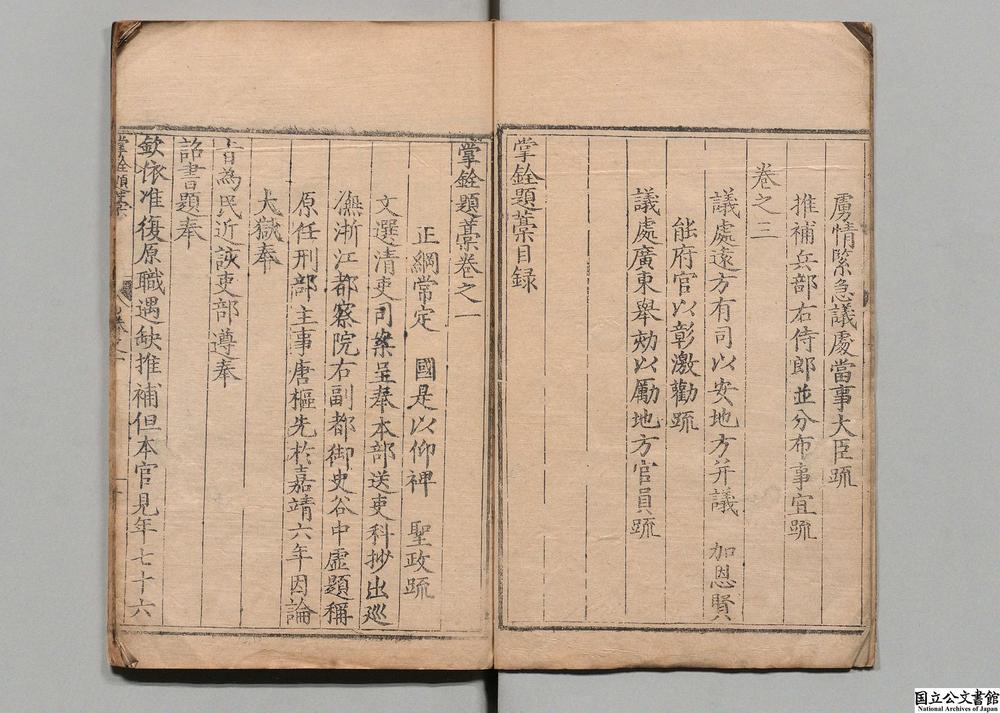 虜情緊急議處當事大臣疏
推補兵部右侍郎並分布事宜疏
卷之三
議處遠方有司以安地方并議 加恩賢
能府官以彰激勸疏
議處廣東舉劾以厲地方官員疏
掌銓題藁目録
掌銓題藁卷之一
正綱常定 國是以仰裨 聖政疏
文選清吏司案呈奉本部送吏科抄出巡
撫浙江都察院右副都御史谷中虛題稱
原任刑部主事唐樞先於嘉靖六年因論
大獄奉
旨為民近該吏部遵奉
詔書題奉
欽依准復原職遇缺推補但本官見年七十六
掌銓題藁
卷之一
国立公文書館
National Archives of Japan